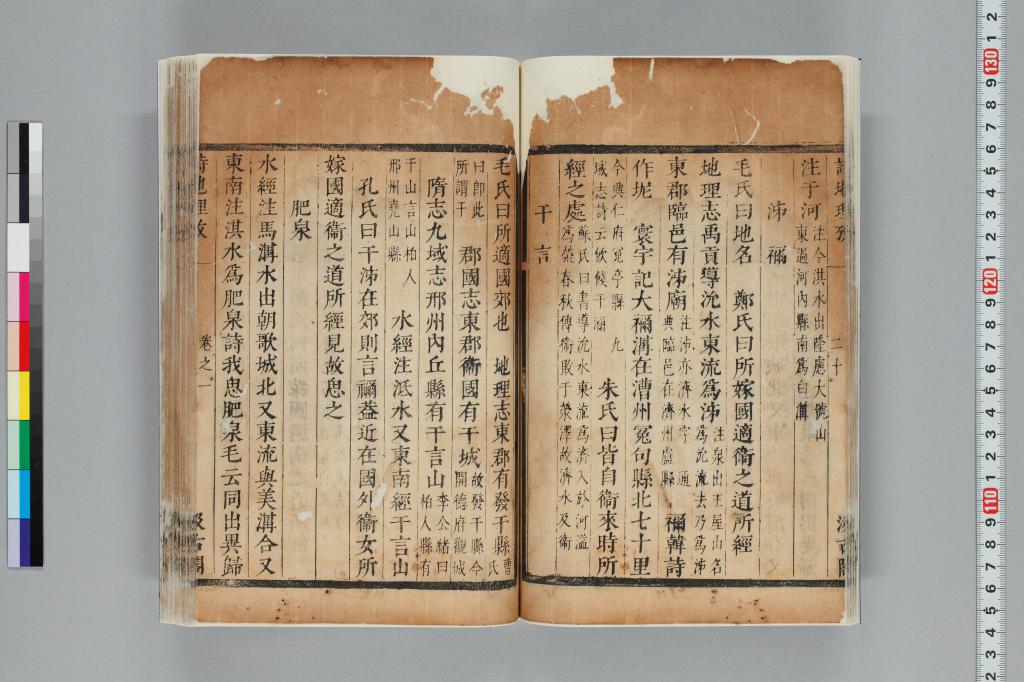 詩地理攷 二十 汲古閣
注于河注今淇水出隆慮大號山東過河內縣南爲白溝
泲 禰
毛氏曰地名 鄭氏曰所嫁國適衞之道所經
地理志禹貢導沇水東流爲泲注泉出王屋山名爲沇流去乃爲泲
東郡臨邑有泲廟注泲亦濟水字 通典臨邑在濟州盧縣 禰韓詩
作坭 寰宇記大禰溝在漕州冤句縣北七十里
今興仁府冤亭縣 九域志詩云飲餞于禰 朱氏曰皆自衞來時所
經之處蘇氏曰書導沇水東流爲濟入于河溢爲滎春秋傳衞敗于滎澤故濟水及衞
干 言
毛氏曰所適國郊也 地理志東郡有發干縣曹氏
曰卽此所謂干 郡國志東郡衞國有干城故發干縣今開德府觀城
隋志九域志邢州內丘縣有干言山李公緒曰柏人縣有
干山言山柏人邢州堯山縣 水經注泜水又東南經干言山
孔氏曰干泲在郊則言禰葢近在國外衞女所
嫁國適衞之道所經見故思之
肥泉
水經注馬溝水出朝歌城北又東流與美溝合又
東南注淇水爲肥泉詩我思肥泉毛云同出異歸
詩地理攷 卷之一 汲古閣